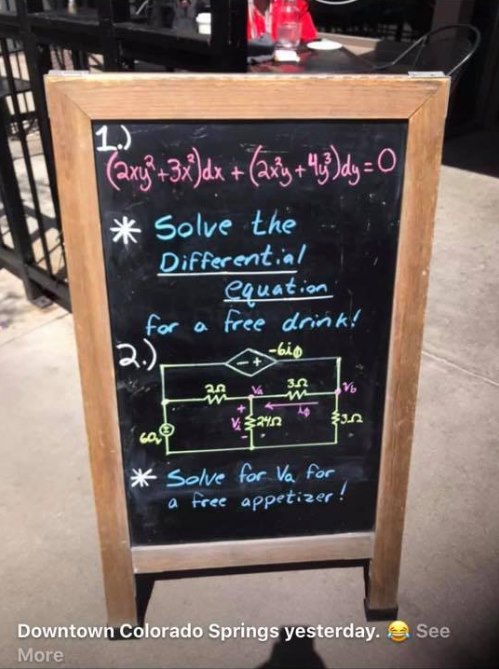 1.)
(2xy²+3x²)dx + (2x²y+4y³)dy=0
* Solve the
Differential
equation
for a free drink!
2.)
-6iϕ
- +
2Ω Va 3Ω Vb
+ iϕ
60v V₁ 24Ω 3Ω
-
* Solve for Va for
a free appetizer!
Downtown Colorado Springs yesterday. 😂 See
More